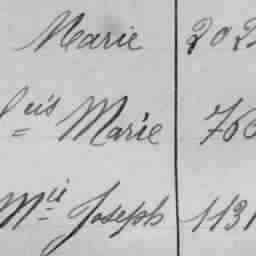 Marie 202
çis Marie 760
Mie Joseph 1131